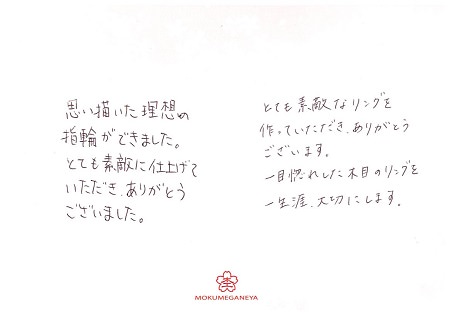 思い描いた理想の
指輪ができました。
とても素敵に仕上げて
いただき、ありがとう
ございました。
とても素敵なリングを
作っていただき、ありがとう
ございます。
一目惚れした木目のリングを
一生涯、大切にします。
MOKUMEGANEYA